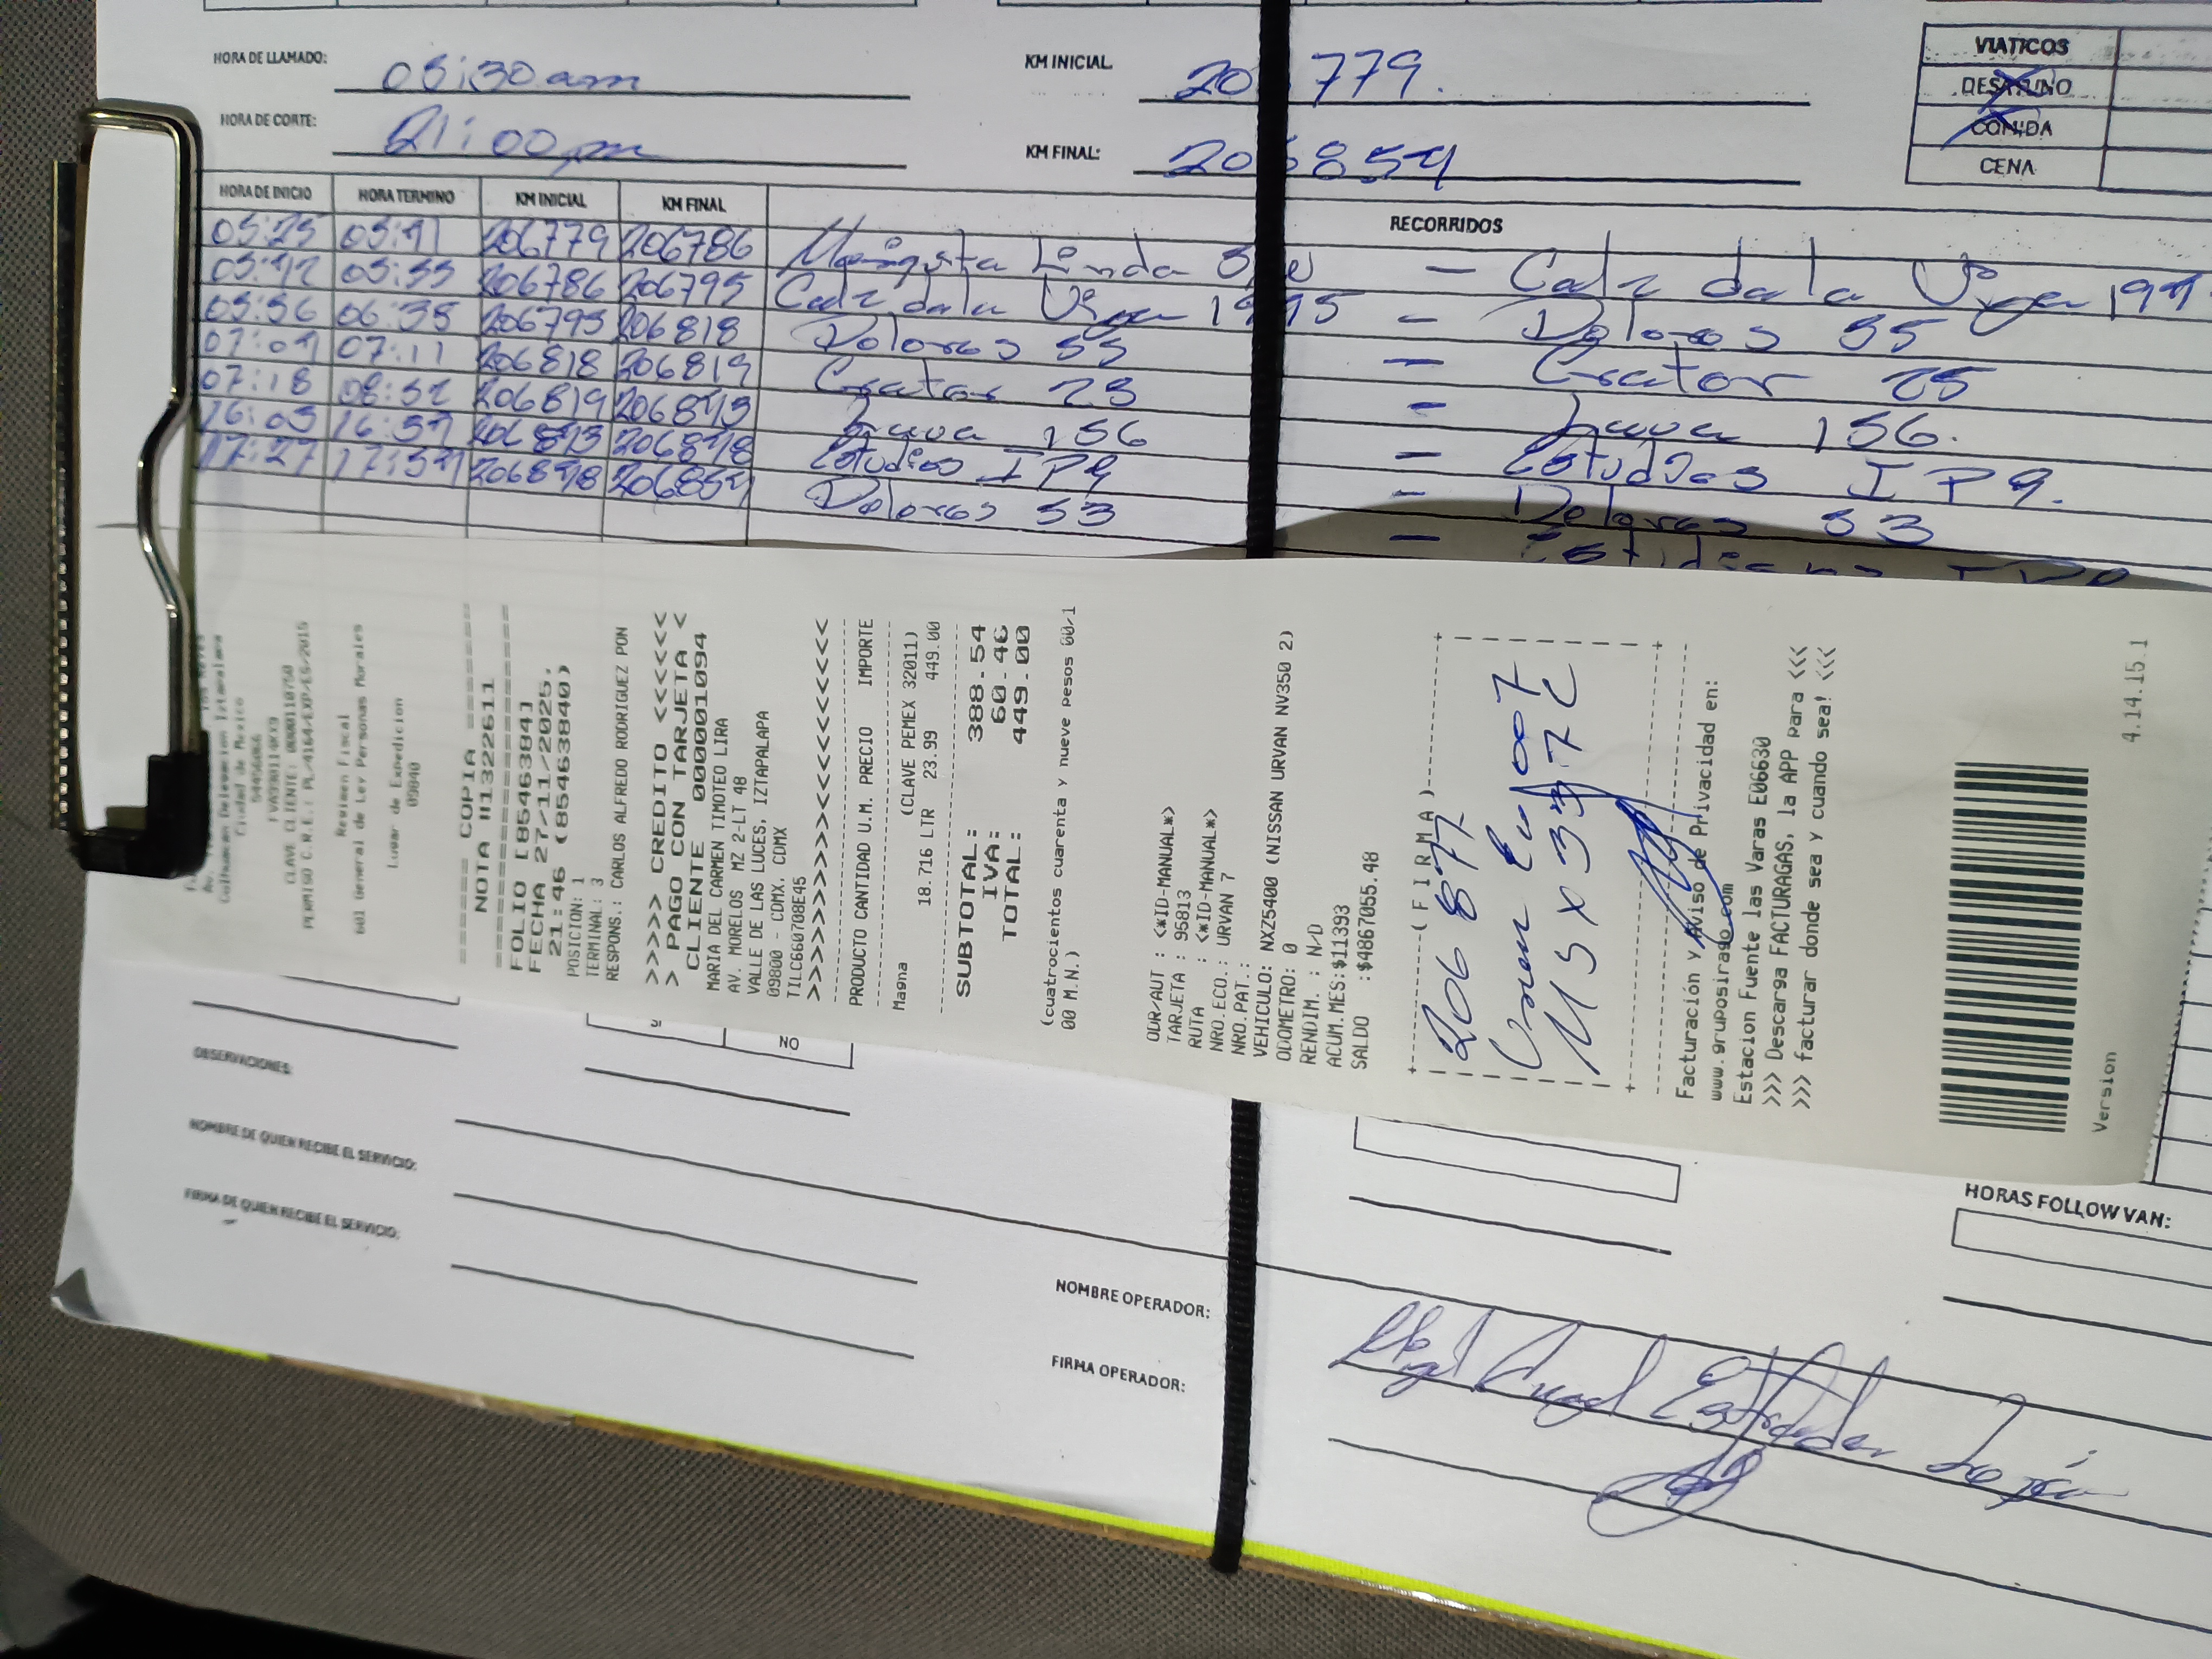 HORA DE LLAMADO: 05:30 am
KM INICIAL 20 779.
HORA DE CORTE: 21:00 pm
KM FINAL: 20 854
VIATICOS
DESAYUNO
COMIDA
CENA
HORA DE INICIO HORA TERMINO KM INICIAL KM FINAL RECORRIDOS
05:25 05:41 206779 206786 Linda - Calz de la Viga
05:42 05:55 206786 206795 Calz de la Viga - Dolores 55
05:56 06:35 206795 206818 Dolores 55 - Crater 25
07:04 07:11 206818 206819 Crater 25 - 156.
07:18 08:32 206819 206843 156 - Estudios
16:05 16:37 206843 206848 Estudios - Dolores 53
17:27 17:54 206848 206854 Dolores 53 -
Culhuacan Delegacion Iztapalapa
Ciudad de Mexico
CLAVE CLIENTE: 0000110750
PERMISO C.R.E.: PL/4164/EXP/ES/2015
Regimen Fiscal
601 General de Ley Personas Morales
Lugar de Expedicion
09840
====== COPIA ======
NOTA #13222611
FOLIO [85463841]
FECHA 27/11/2025,
21:46 (85463840)
POSICION: 1
TERMINAL: 3
RESPONS.: CARLOS ALFREDO RODRIGUEZ PON
>>>>> CREDITO <<<<<<
> PAGO CON TARJETA <
CLIENTE 0000001094
MARIA DEL CARMEN TIMOTEO LIRA
AV. MORELOS MZ 2-LT 48
VALLE DE LAS LUCES, IZTAPALAPA
09800 - CDMX, CDMX
TILC660708E45
PRODUCTO CANTIDAD U.M. PRECIO IMPORTE
Magna (CLAVE PEMEX 32011)
18.716 LTR 23.99 449.00
SUBTOTAL: 388.54
IVA: 60.46
TOTAL: 449.00
(cuatrocientos cuarenta y nueve pesos 00/1
00 M.N.)
ODR/AUT : <*ID-MANUAL*>
TARJETA : 95813
RUTA : <*ID-MANUAL*>
NRO.ECO.: URVAN 7
NRO.PAT.:
VEHICULO: NXZ5400 (NISSAN URVAN NV350 2)
ODOMETRO: 0
RENDIM. : N/D
ACUM.MES:$11393
SALDO :$4867055.48
+-------( F I R M A )-------+
206 877
Facturación y Aviso de Privacidad en:
www.gruposirago.com
Estacion Fuente las Varas E06630
>>> Descarga FACTURAGAS, la APP para <<<
>>> facturar donde sea y cuando sea! <<<
Version 4.14.15.1
NO
OBSERVACIONES
NOMBRE DE QUIEN RECIBE EL SERVICIO:
FIRMA DE QUIEN RECIBE EL SERVICIO:
HORAS FOLLOW VAN:
NOMBRE OPERADOR: Angel Estrada
FIRMA OPERADOR: